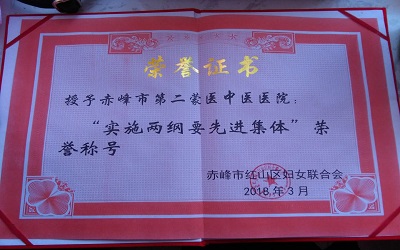 荣誉证书
授予赤峰市第二蒙医中医医院：
“实施两纲要先进集体”荣
誉称号
赤峰市红山区妇女联合会
2018年3月